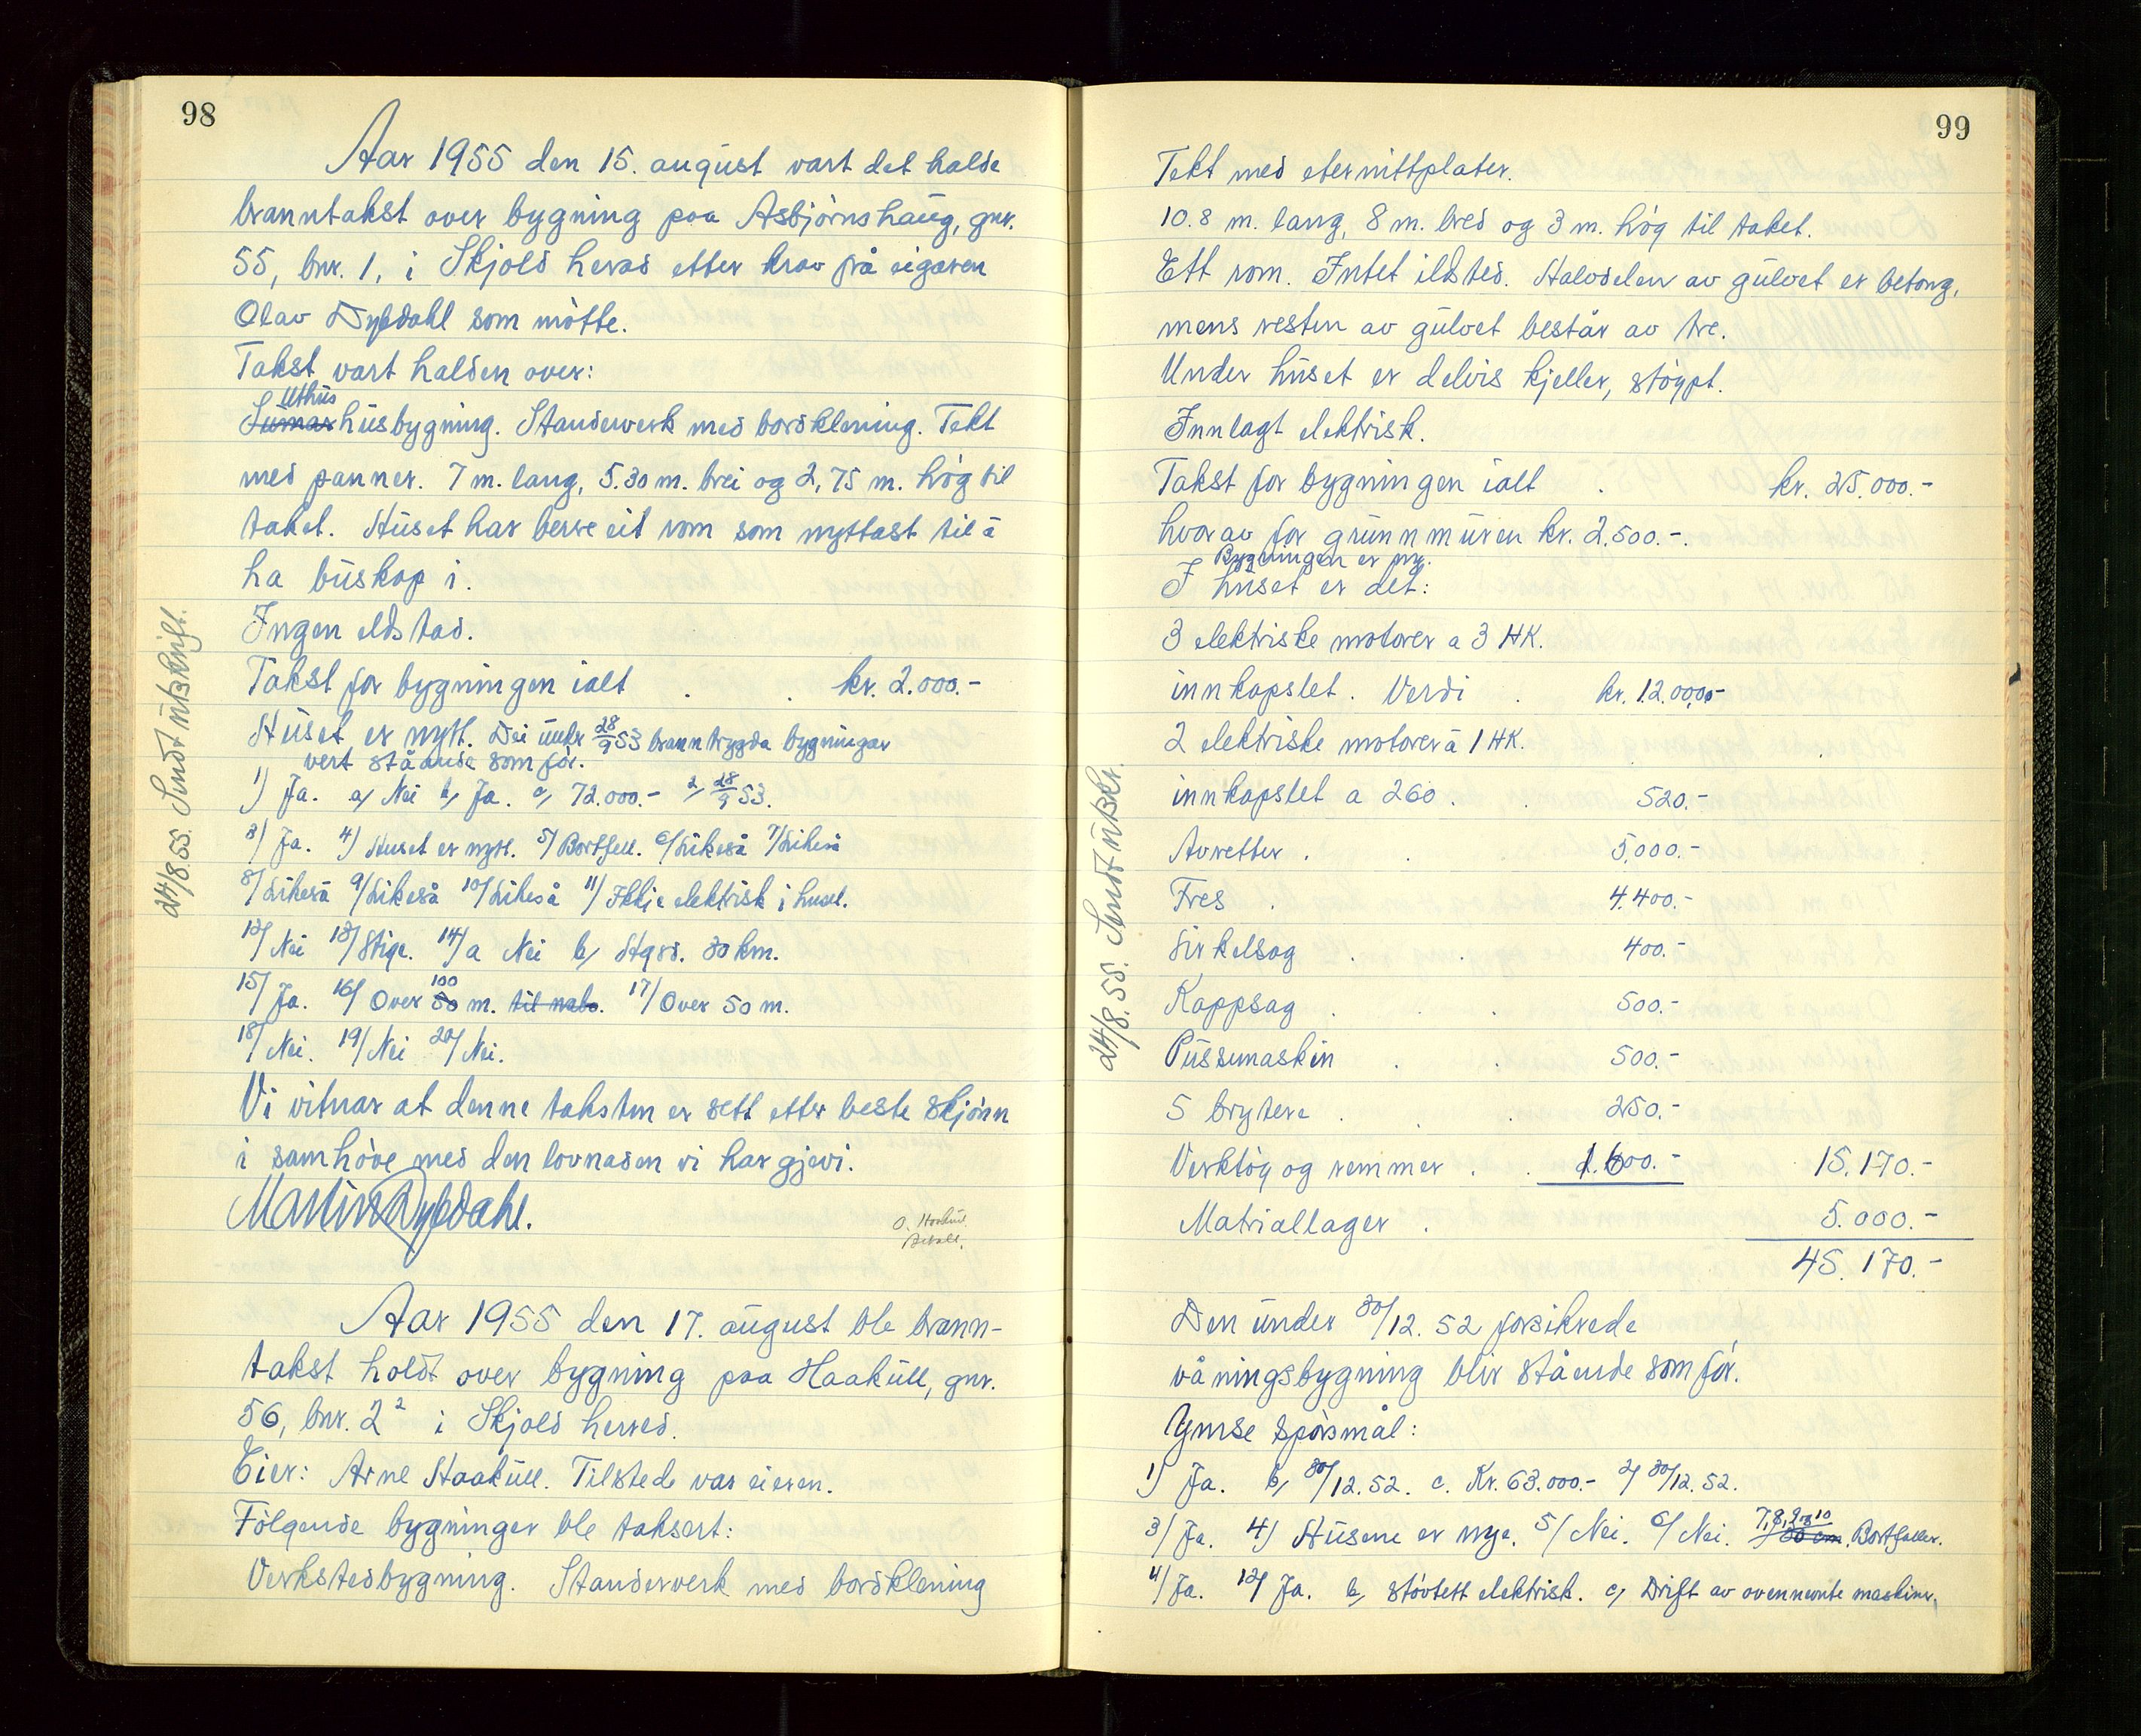 98
Aar 1955 den 15. august vart det halde
branntakst over bygning paa Asbjørnshaug, gnr.
55, bnr. 1, i Skjold herad etter krav frå eigaren
Olav Dybdahl som møtte.
Takst vart halden over:
Uthus
Sumarhusbygning. Standerverk med bordklening. Tekt
med panner. 7 m. lang, 5.30 m. brei og 2,75 m. høg til
taket. Huset har berre eit rom som nyttast til å
ha buskap i.
Ingen eldstad.
Takst for bygningen ialt . . kr. 2.000.-
Huset er nytt. Dei under 28/9 53 branntrygda bygningar
vert ståande som før.
1) Ja. a, Nei b, Ja. c, 72.000.- 2, 28/9 53.
3) Ja. 4) Huset er nytt. 5/ Bortfell. 6/ Likeså 7/ Likeså
8/ Likeså 9/ Likeså 10/ Likeså 11/ Ikkje elektrisk i huset.
12/ Nei 13/ Stige. 14/ a Nei b, Hgsd. 30 km.
100
15/ Ja. 16/ Over 80 m. til nabo. 17/ Over 50 m.
18/ Nei. 19/ Nei 20/ Nei.
Vi vitnar at denne taksten er sett etter beste skjønn
i samhøve med den lovnaden vi har gjevi.
Martin Dybdahl.
24/8.55. Sendt utskrift.
Aar 1955 den 17. august ble brann-
takst holdt over bygning paa Haakull, gnr.
56, bnr. 2² i Skjold herred.
Eier: Arne Haakull. Tilstede var eieren.
Følgende bygninger ble taksert:
Verkstedbygning. Standerverk med bordklening
99
Tekt med eternittplater.
10.8 m. lang, 8 m. bred og 3 m. høg til taket.
Ett rom. Intet ildsted. Halvdelen av gulvet er betong,
mens resten av gulvet består av tre.
Under huset er delvis kjeller, støypt.
Innlagt elektrisk.
Takst for bygningen ialt . kr. 25.000.-
hvorav for grunnmuren kr. 2.500.-.
Bygningen er ny.
I huset er det:
3 elektriske motorer a 3 HK.
innkapslet. Verdi . kr. 12.000,-
2 elektriske motorer à 1 HK.
innkapslet a 260 . 520.-
Avretter . . . 5.000.-
Fres . 4.400.-
Sirkelsag . . 400.-
Kappsag . . . 500.-
Pussemaskin . . 500.-
5 brytere . . . 250.-
Verktøy og remmer . . 1.600.- 15.170.-
Matriallager . 5.000.-
45.170.-
24/8.55. Sendt utskr.
Den under 30/12. 52 forsikrede
våningsbygning blir stående som før.
Ymse spørsmål:
1) Ja. b, 30/12. 52. c. Kr. 63.000.- 2/ 30/12. 52.
3/ Ja. 4) Husene er nye. 5/ Nei. 6/ Nei. 7,8,9 og 10 80 cm. Bortfaller.
11/ Ja. 12/ Ja. b, støvtett elektrisk. c, Drift av ovennevnte maskiner.